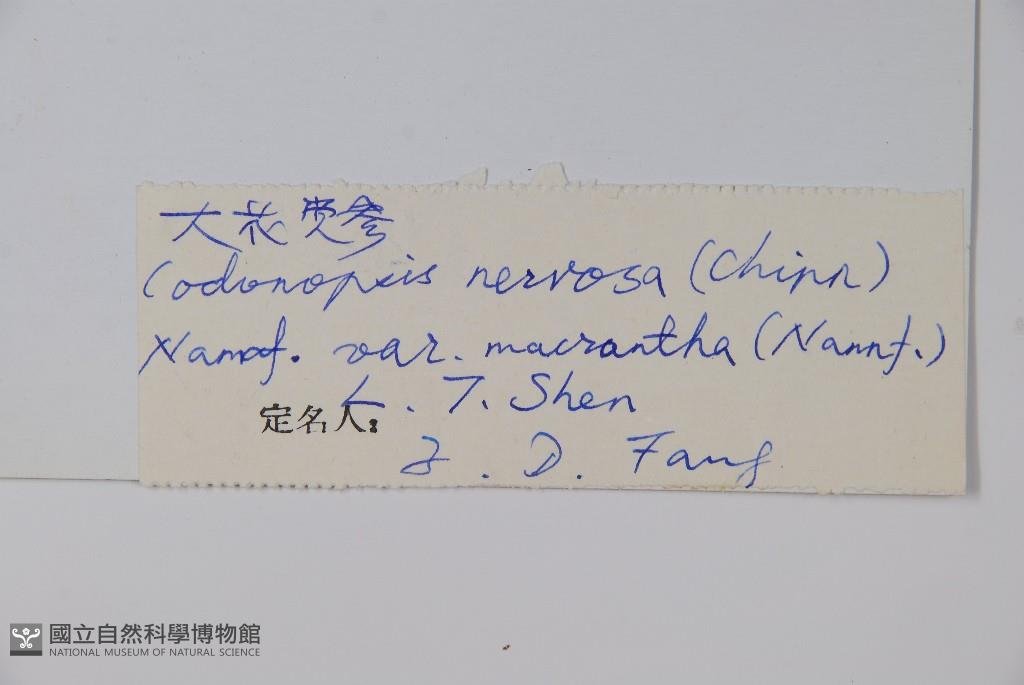 大花党参
Codonopsis nervosa (Chipp)
Nannf. var. macrantha (Nannf.)
L. T. Shen
定名人:
Z. D. Fang
國立自然科學博物館
NATIONAL MUSEUM OF NATURAL SCIENCE